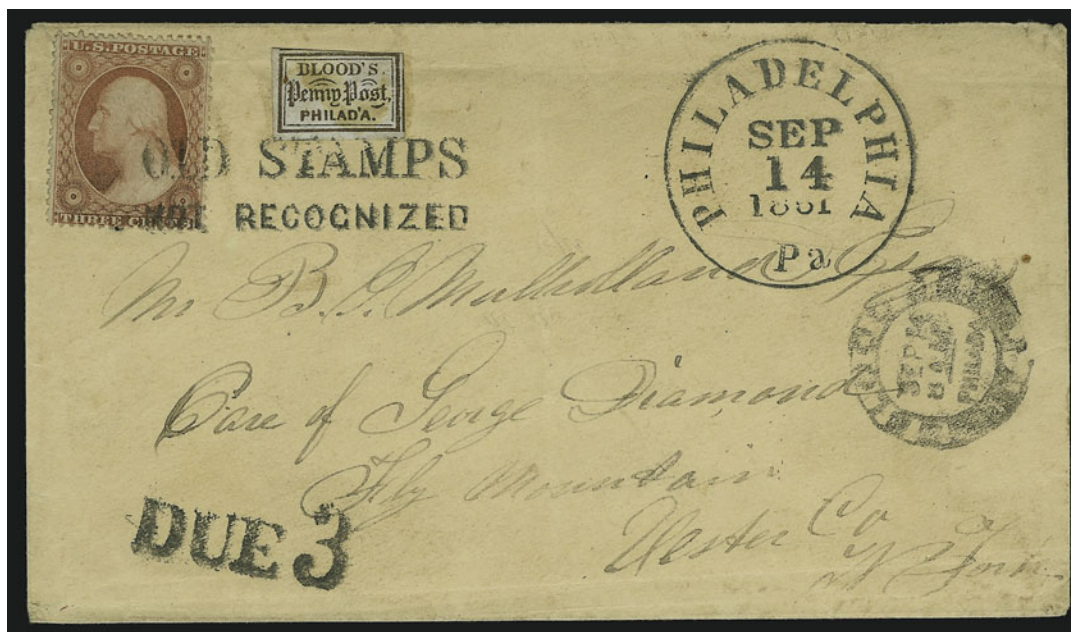 U.S. POSTAGE
THREE CENTS
BLOOD'S
Penny Post,
PHILAD'A.
OLD STAMPS
NOT RECOGNIZED
PHILADELPHIA
SEP
14
1861
Pa
SEP 14
8 AM
PHILADA
Mr B. J. Mulholland Esq
Care of George Diamond
Fly Mountain
Ulster Co
N York
DUE 3